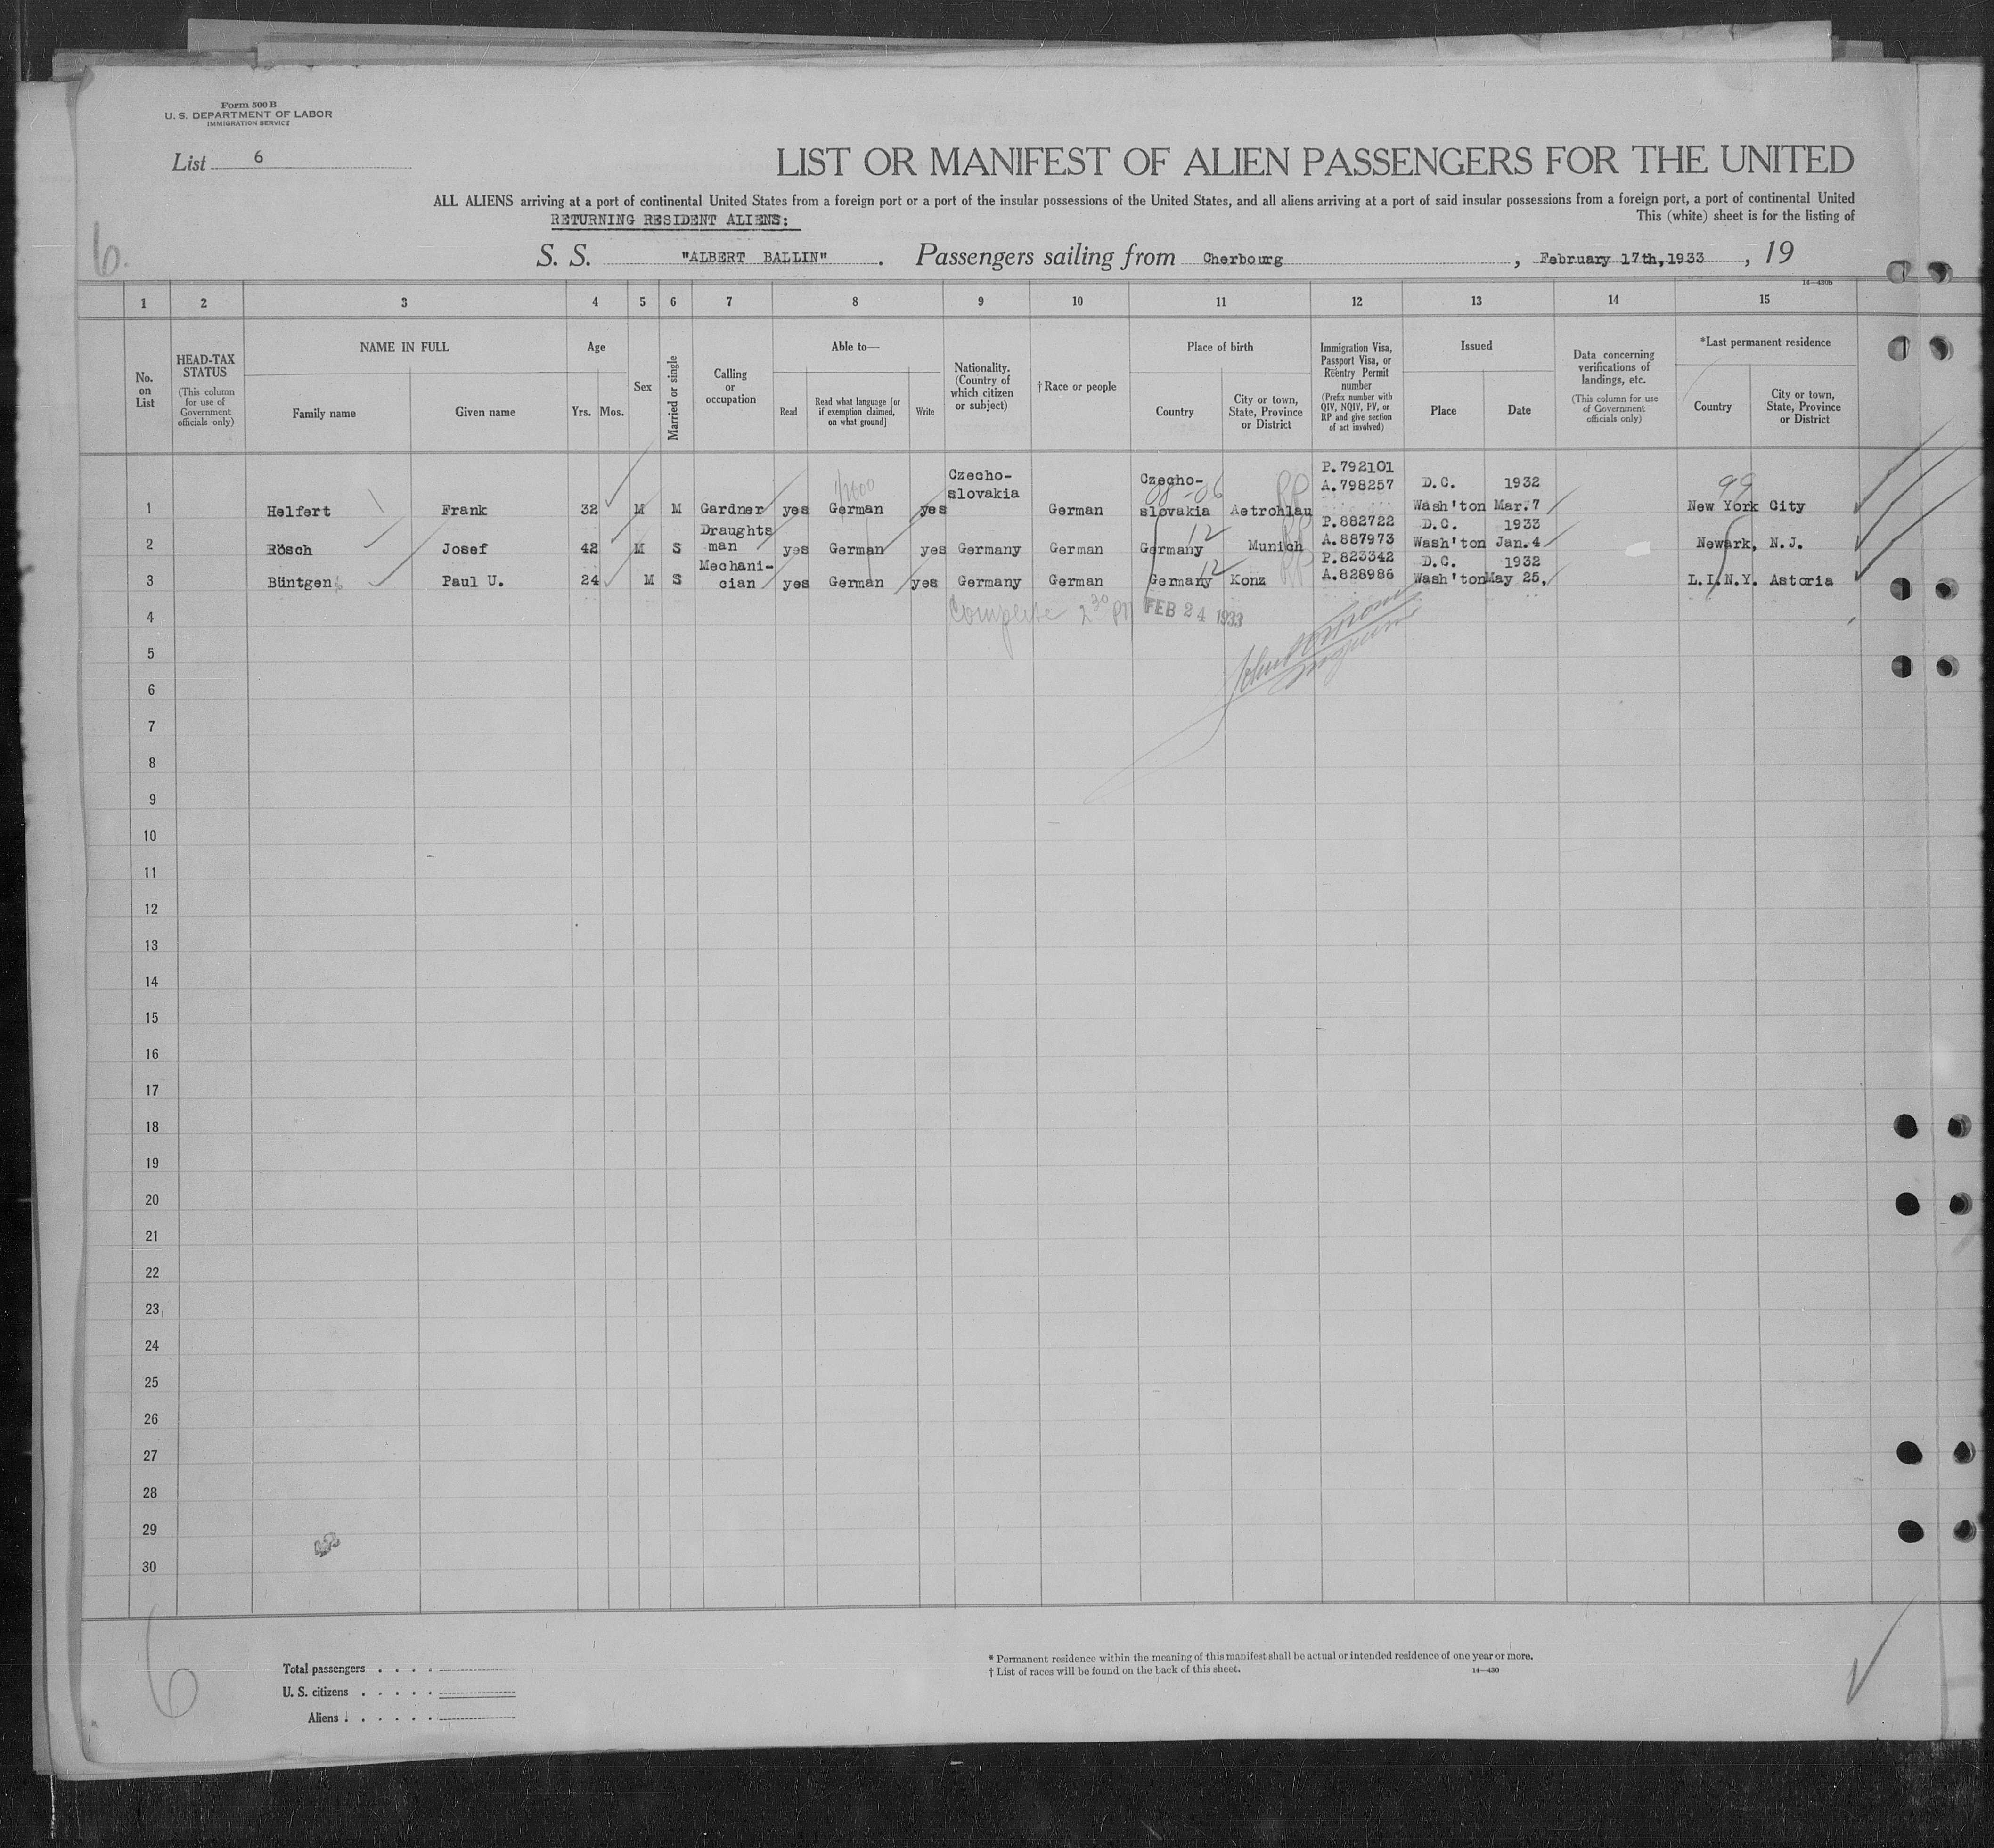 Form 500 B
U. S. DEPARTMENT OF LABOR
IMMIGRATION SERVICE
List 6
LIST OR MANIFEST OF ALIEN PASSENGERS FOR THE UNITED
ALL ALIENS arriving at a port of continental United States from a foreign port or a port of the insular possessions of the United States, and all aliens arriving at a port of said insular possessions from a foreign port, a port of continental United
RETURNING RESIDENT ALIENS:
This (white) sheet is for the listing of
6.
S. S. "ALBERT BALLIN" . Passengers sailing from Cherbourg , February 17th,1933 , 19
14—430B
1 2 3 4 5 6 7 8 9 10 11 12 13 14 15
No. on List
HEAD-TAX STATUS
(This column for use of Government officials only)
NAME IN FULL
Family name Given name
Age
Yrs. Mos.
Sex
Married or single
Calling or occupation
Able to—
Read
Read what language [or if exemption claimed, on what ground]
Write
Nationality. (Country of which citizen or subject)
†Race or people
Place of birth
Country
City or town, State, Province or District
Immigration Visa, Passport Visa, or Reëntry Permit number
(Prefix number with QIV, NQIV, PV, or RP and give section of act involved)
Issued
Place Date
Data concerning verifications of landings, etc.
(This column for use of Government officials only)
*Last permanent residence
Country
City or town, State, Province or District
P.792101
Czecho- Czecho- A.798257 D.C. 1932
slovakia 08-06 RP 99
1 Helfert Frank 32 M M Gardner yes German yes German slovakia Aetrohlau Wash'ton Mar.7 New York City
Draughts 12 RP P.882722 D.C. 1933
2 Rösch Josef 42 M S man yes German yes Germany German Germany Munich A.887973 Wash'ton Jan.4 Newark, N.J.
Mechani- 12 RP P.823342 D.C. 1932
3 Büntgen Paul U. 24 M S cian yes German yes Germany German Germany Konz A.828986 Wash'ton May 25, L.I.N.Y. Astoria
Complete 2 30 PM FEB 24 1933
4
5
6
7
8
9
10
11
12
13
14
15
16
17
18
19
20
21
22
23
24
25
26
27
28
29
30
6
Total passengers . . . .
U. S. citizens . . . . .
Aliens . . . . . .
* Permanent residence within the meaning of this manifest shall be actual or intended residence of one year or more.
† List of races will be found on the back of this sheet.
14—430